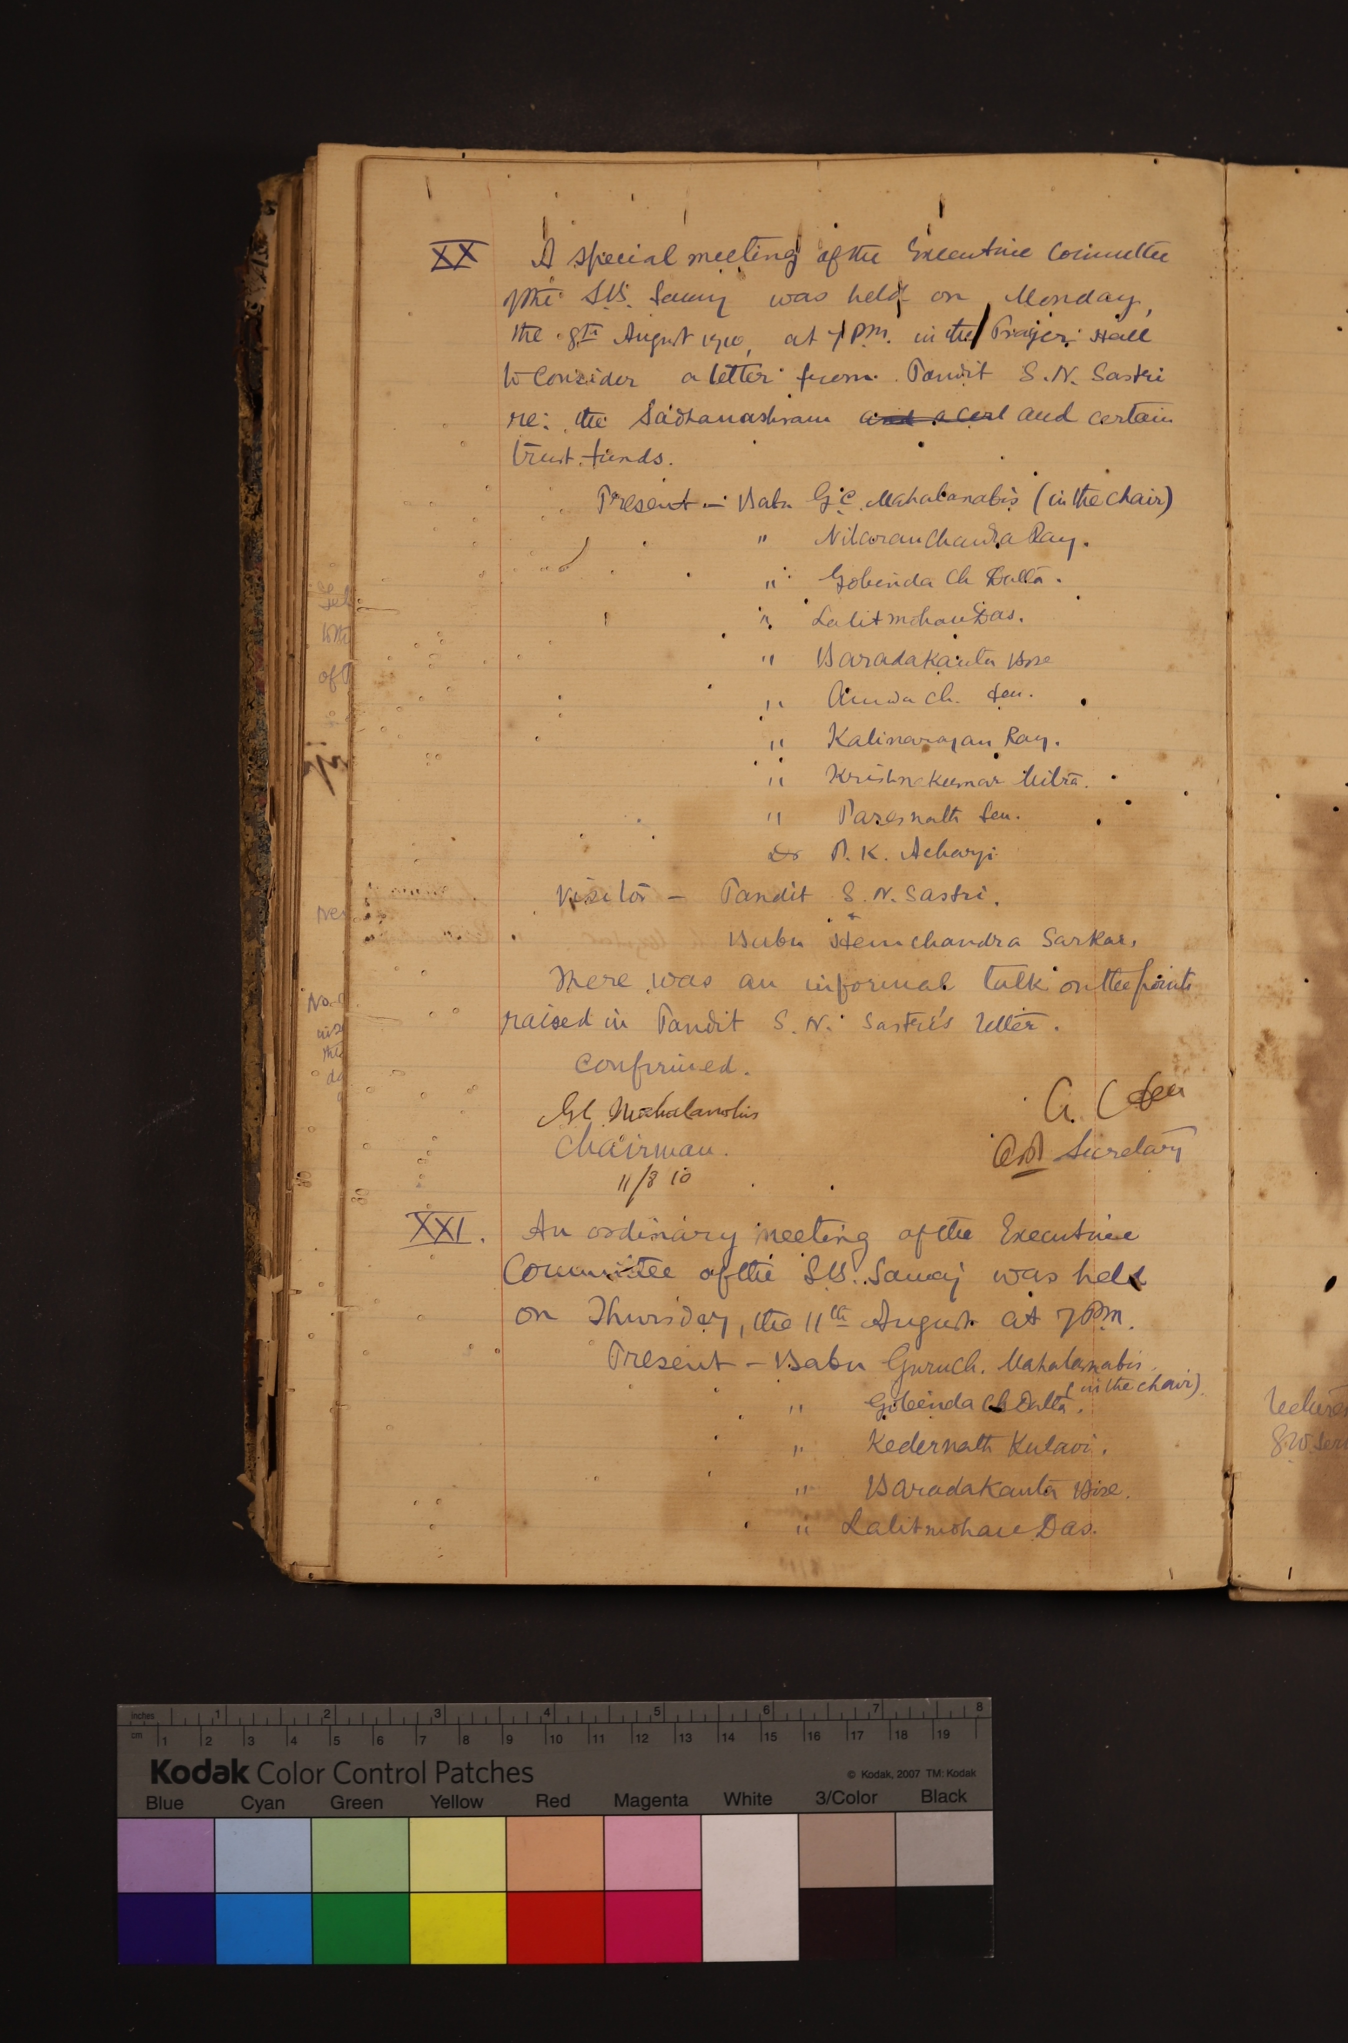 XX A special meeting of the Executive Committee
of the S.B. Samaj was held on Monday,
the 8th August 1910, at 7 P.M. in the Prayer Hall
to consider a letter from Pandit S. N. Sastri
re: the Sadhanashram and certain
trust funds.
Present — Babu G. C. Mahalanabis (in the chair)
" Nibaran Chandra Ray.
" Gobinda Ch Dutta.
" Lalit mohan Das.
" Baradakanta Bose
" Ch. Sen.
" Kalinarayan Ray.
" Krishnakumar Mitra.
" Paresnath Sen.
Dr P. K. Acharji
Visitor — Pandit S. N. Sastri.
Babu Hemchandra Sarkar.
There was an informal talk on the points
raised in Pandit S. N. Sastri's letter.
Confirmed.
G C Mahalanobis
Chairman.
11/8 10
A. C Sen
Secretary
XXI. An ordinary meeting of the Executive
Committee of the S.B. Samaj was held
on Thursday, the 11th August at 7 P.M.
Present — Babu Guru Ch. Mahalanabis
(in the chair).
" Gobinda Ch Dutta.
" Kedernath Kulavi.
" Baradakanta Bose.
" Lalitmohan Das.
inches 1 2 3 4 5 6 7 8
cm 1 2 3 4 5 6 7 8 9 10 11 12 13 14 15 16 17 18 19
Kodak Color Control Patches © Kodak, 2007 TM: Kodak
Blue Cyan Green Yellow Red Magenta White 3/Color Black